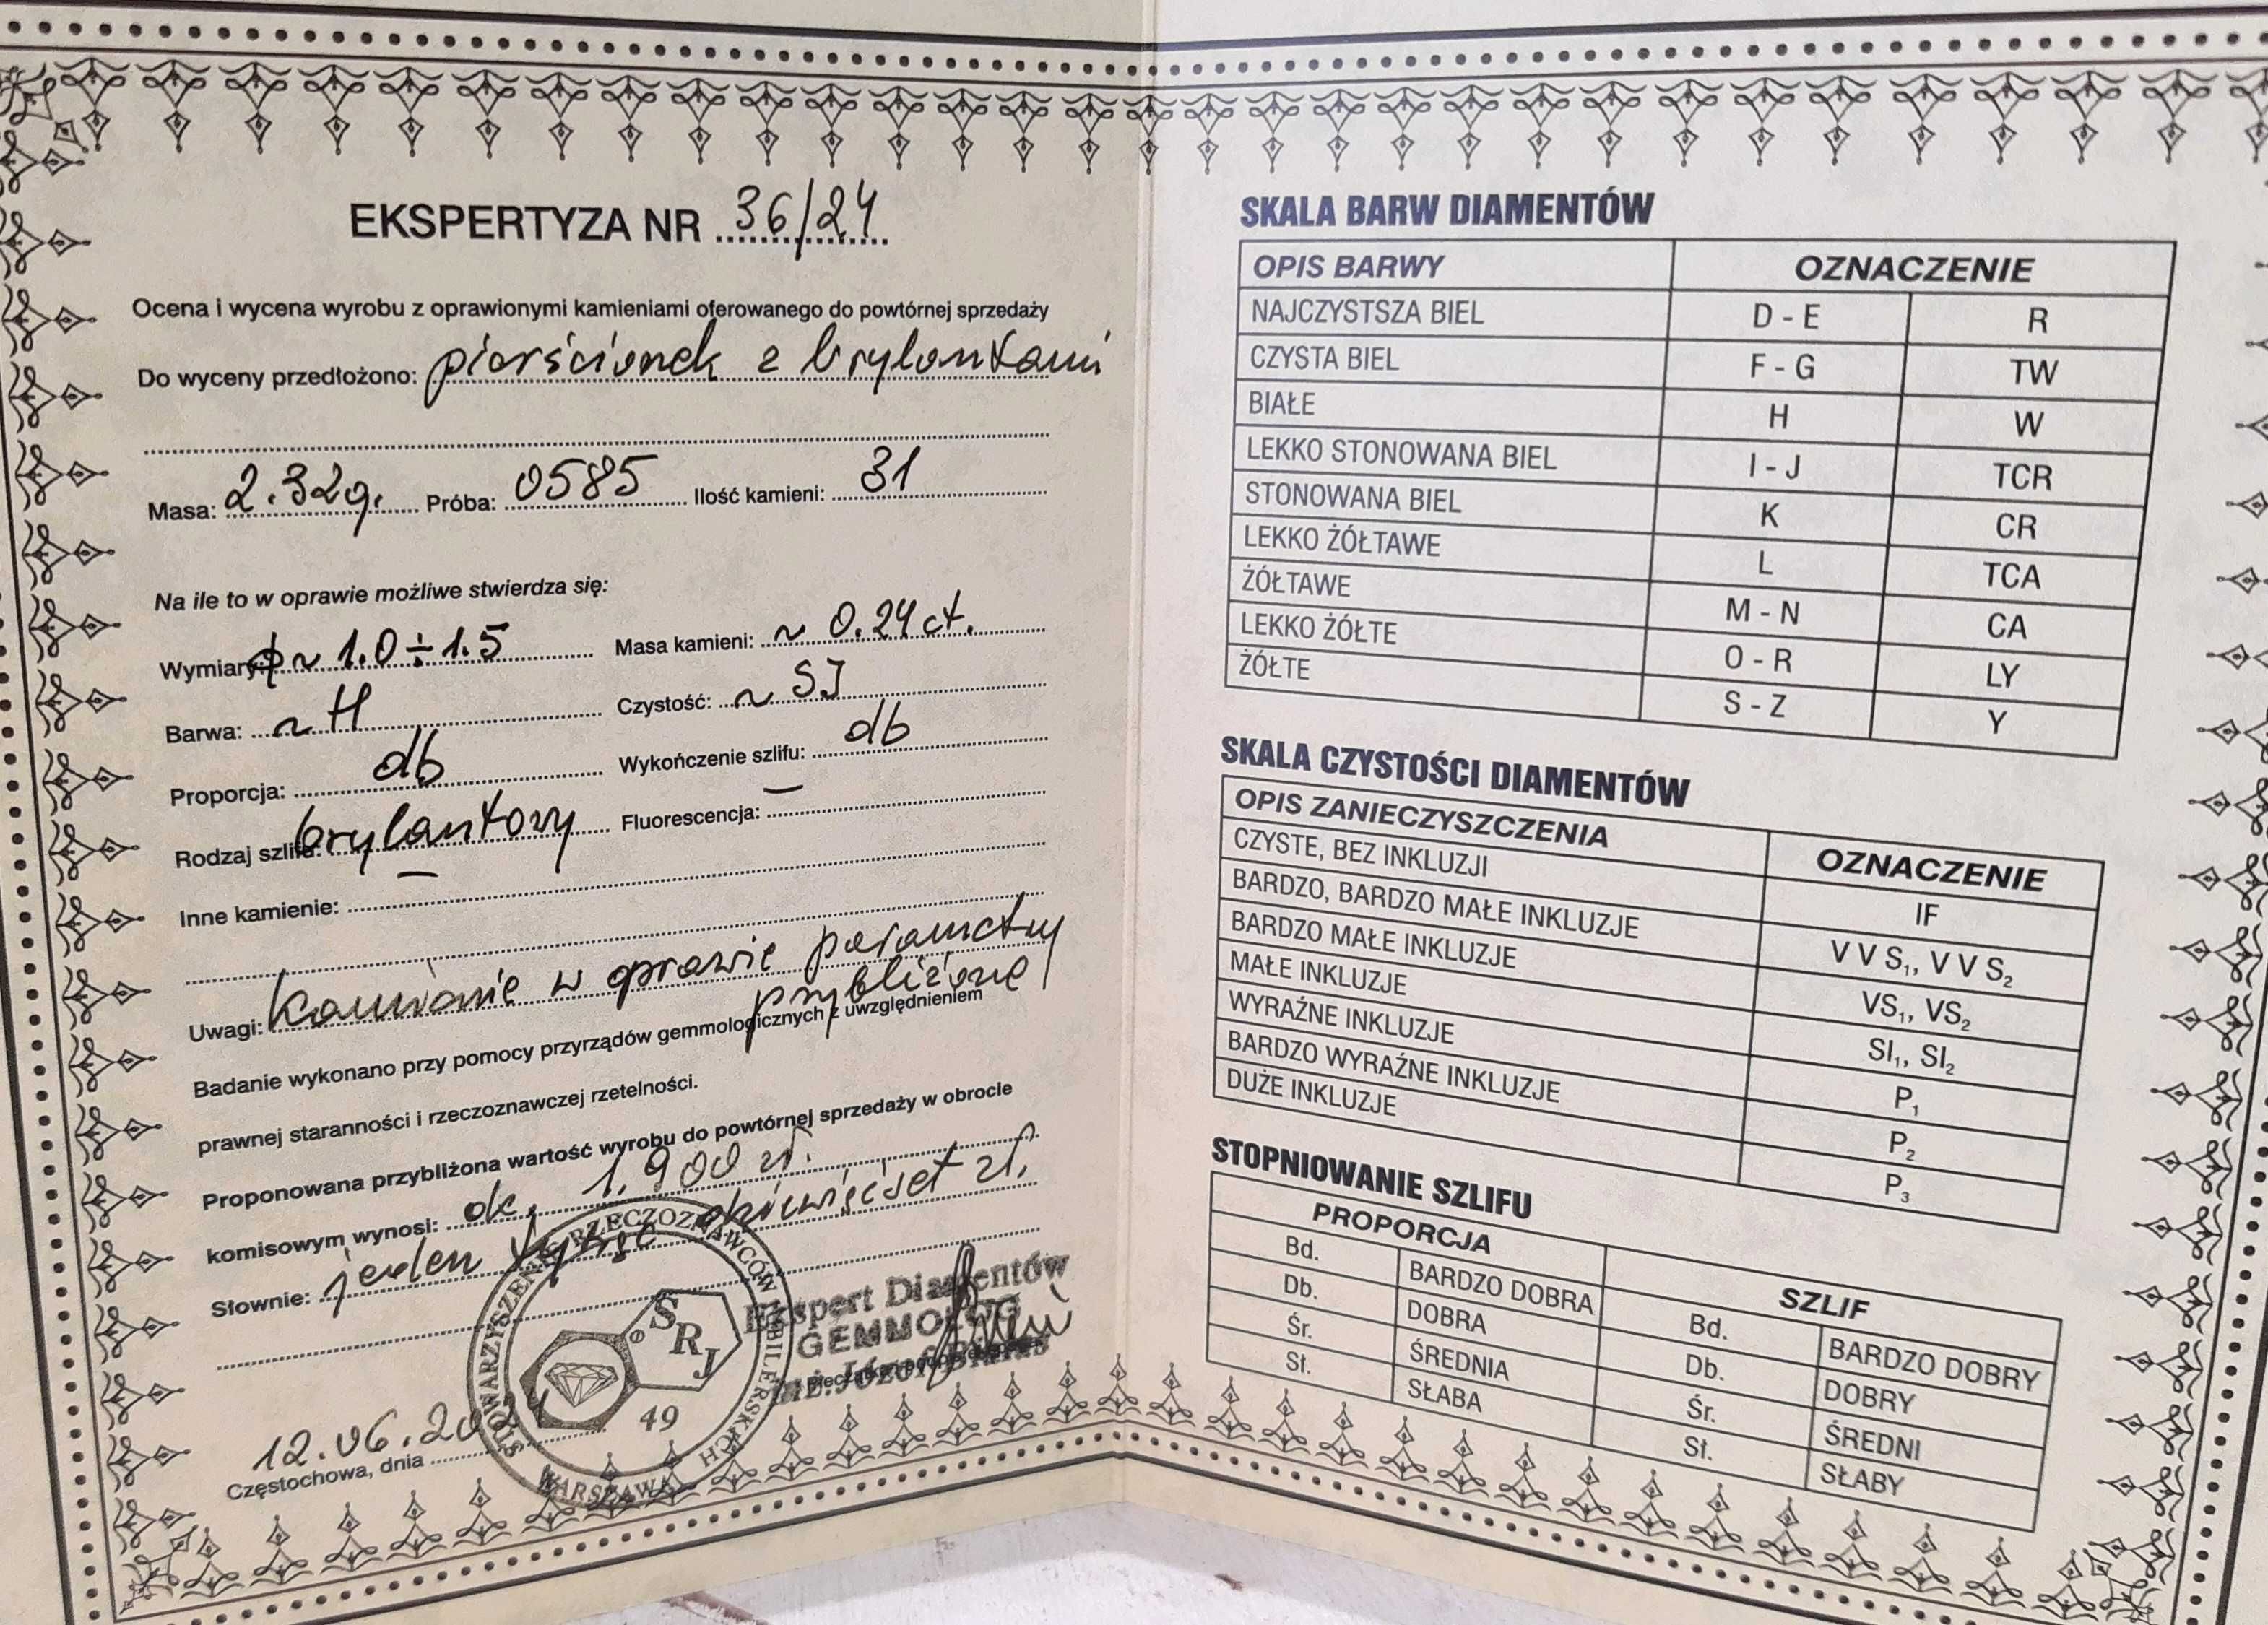 EKSPERTYZA NR 36/24
Ocena i wycena wyrobu z oprawionymi kamieniami oferowanego do powtórnej sprzedaży
Do wyceny przedłożono: pierścionek z brylantami
Masa: 2.32g. Próba: 0585 Ilość kamieni: 31
Na ile to w oprawie możliwe stwierdza się:
Wymiary: ϕ ~ 1.0÷1.5 Masa kamieni: ~ 0.24 ct.
Barwa: ~ H Czystość: ~ SI
Proporcja: db Wykończenie szlifu: db
Rodzaj szlifu: brylantowy Fluorescencja: —
Inne kamienie: —
Uwagi: Kamienie w oprawie parametry
przybliżone
Badanie wykonano przy pomocy przyrządów gemmologicznych z uwzględnieniem
prawnej staranności i rzeczoznawczej rzetelności.
Proponowana przybliżona wartość wyrobu do powtórnej sprzedaży w obrocie
komisowym wynosi: ok. 1.900 zł.
Słownie: jeden tysiąc dziewięćset zł.
STOWARZYSZENIE RZECZOZNAWCÓW JUBILERSKICH
WARSZAWA
SRJ
49
Ekspert Diamentów
GEMMOLOG
inż. Józef
12.06.2024
Częstochowa, dnia
SKALA BARW DIAMENTÓW
OPIS BARWY OZNACZENIE
NAJCZYSTSZA BIEL D - E R
CZYSTA BIEL F - G TW
BIAŁE H W
LEKKO STONOWANA BIEL I - J TCR
STONOWANA BIEL K CR
LEKKO ŻÓŁTAWE L TCA
ŻÓŁTAWE M - N CA
LEKKO ŻÓŁTE O - R LY
ŻÓŁTE S - Z Y
SKALA CZYSTOŚCI DIAMENTÓW
OPIS ZANIECZYSZCZENIA OZNACZENIE
CZYSTE, BEZ INKLUZJI IF
BARDZO, BARDZO MAŁE INKLUZJE V V S₁, V V S₂
BARDZO MAŁE INKLUZJE VS₁, VS₂
MAŁE INKLUZJE SI₁, SI₂
WYRAŹNE INKLUZJE P₁
BARDZO WYRAŹNE INKLUZJE P₂
DUŻE INKLUZJE P₃
STOPNIOWANIE SZLIFU
PROPORCJA SZLIF
Bd. BARDZO DOBRA Bd. BARDZO DOBRY
Db. DOBRA Db. DOBRY
Śr. ŚREDNIA Śr. ŚREDNI
Sł. SŁABA Sł. SŁABY